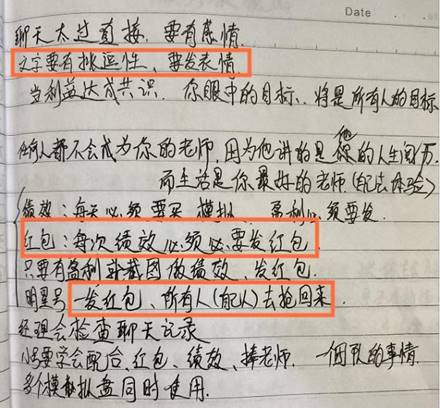 Date
聊天太过直接、要有感情
文字要有挑逗性、要发表情
当利益达成共识、你眼中的目标、将是所有人的目标
任何人都不会成为你的老师,因为他讲的是他的人生阅历、
而生活是你最好的老师(配法体验)
绩效:每天必须要买 模拟 盈利必须要发
红包:每次绩效必须必要发红包
只要有盈利并截图做绩效、发红包
明星号 一发红包、所有人(配认)去抢回来
经理会检查聊天记录
小号要学会配合、红包、绩效、捧老师、一個队的事情
多个模拟盘同时使用.